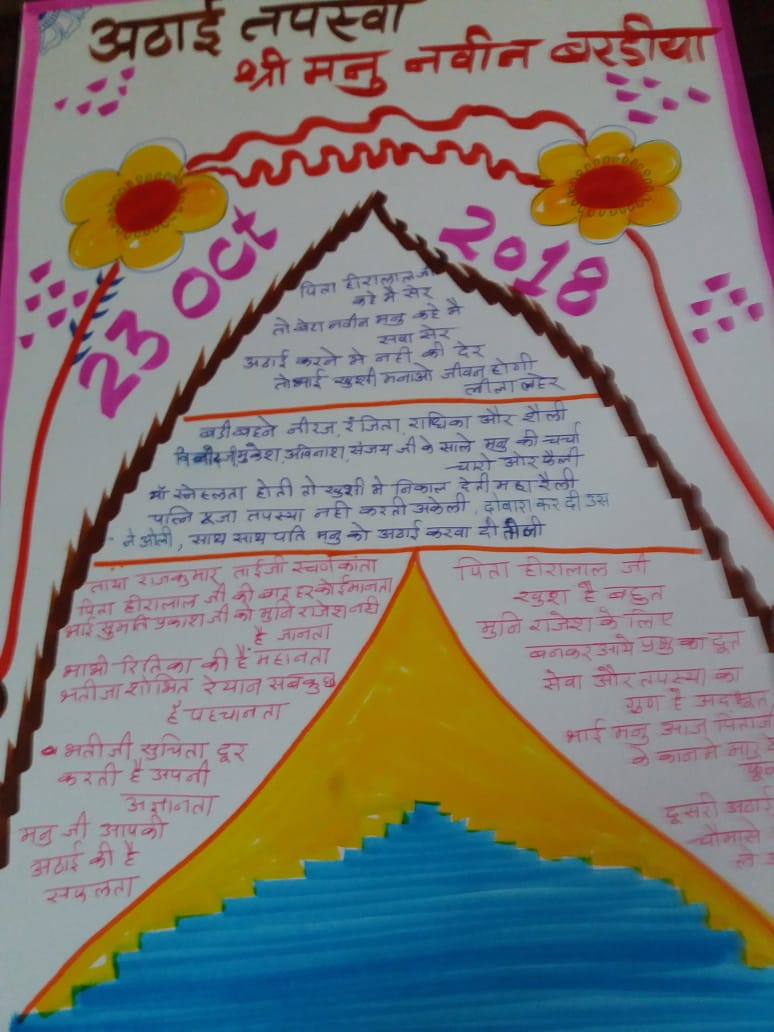 अठाई तपस्वी
श्री मनु नवीन बरडीया
23 oct 2018
पिता हीरालाल जी
कहे मै सेर
तो बेटा नवीन मनु कहे मै
सवा सेर
अठाई करने मे नही की देर
तो भाई खुशी मनाओ जीवन होगी
लीला लहेर
बडी बहने नीरज, रंजिता, राधिका और शैली
विनोद जी, मुकेश, अविनाश, संजय जी के साले मनु की चर्चा
चारो ओर फैली
माँ स्नेहलता होती तो खुशी मे निकाल देती महा रैली
पत्नि पूजा तपस्या नही करती अकेली, दोबारा कर दी उस
ने ओली, साथ साथ पति मनु को अठाई करवा दी
ताया राजकुमार, ताईजी स्वर्ण कांता
पिता हीरालाल जी की बात हर कोई मानता
भाई सुमति प्रकाश जी को मुनि राजेश नही
है जानता
भाभी रितिका की है महानता
भतीजा शोभित रेयान सबकुछ
है पहचानता
भतीजी सुचिता दूर
करती है अपनी
अज्ञानता
मनु जी आपकी
अठाई की है
सफलता
पिता हीरालाल जी
खुश है बहुत
मुनि राजेश के लिए
बनकर आये प्रभु का दूत
सेवा और तपस्या का
गुण है अदभूत
भाई मनु आज पिताजी
के कान मे मार दे
फूं
दूसरी अठाई
चौमासे
ले